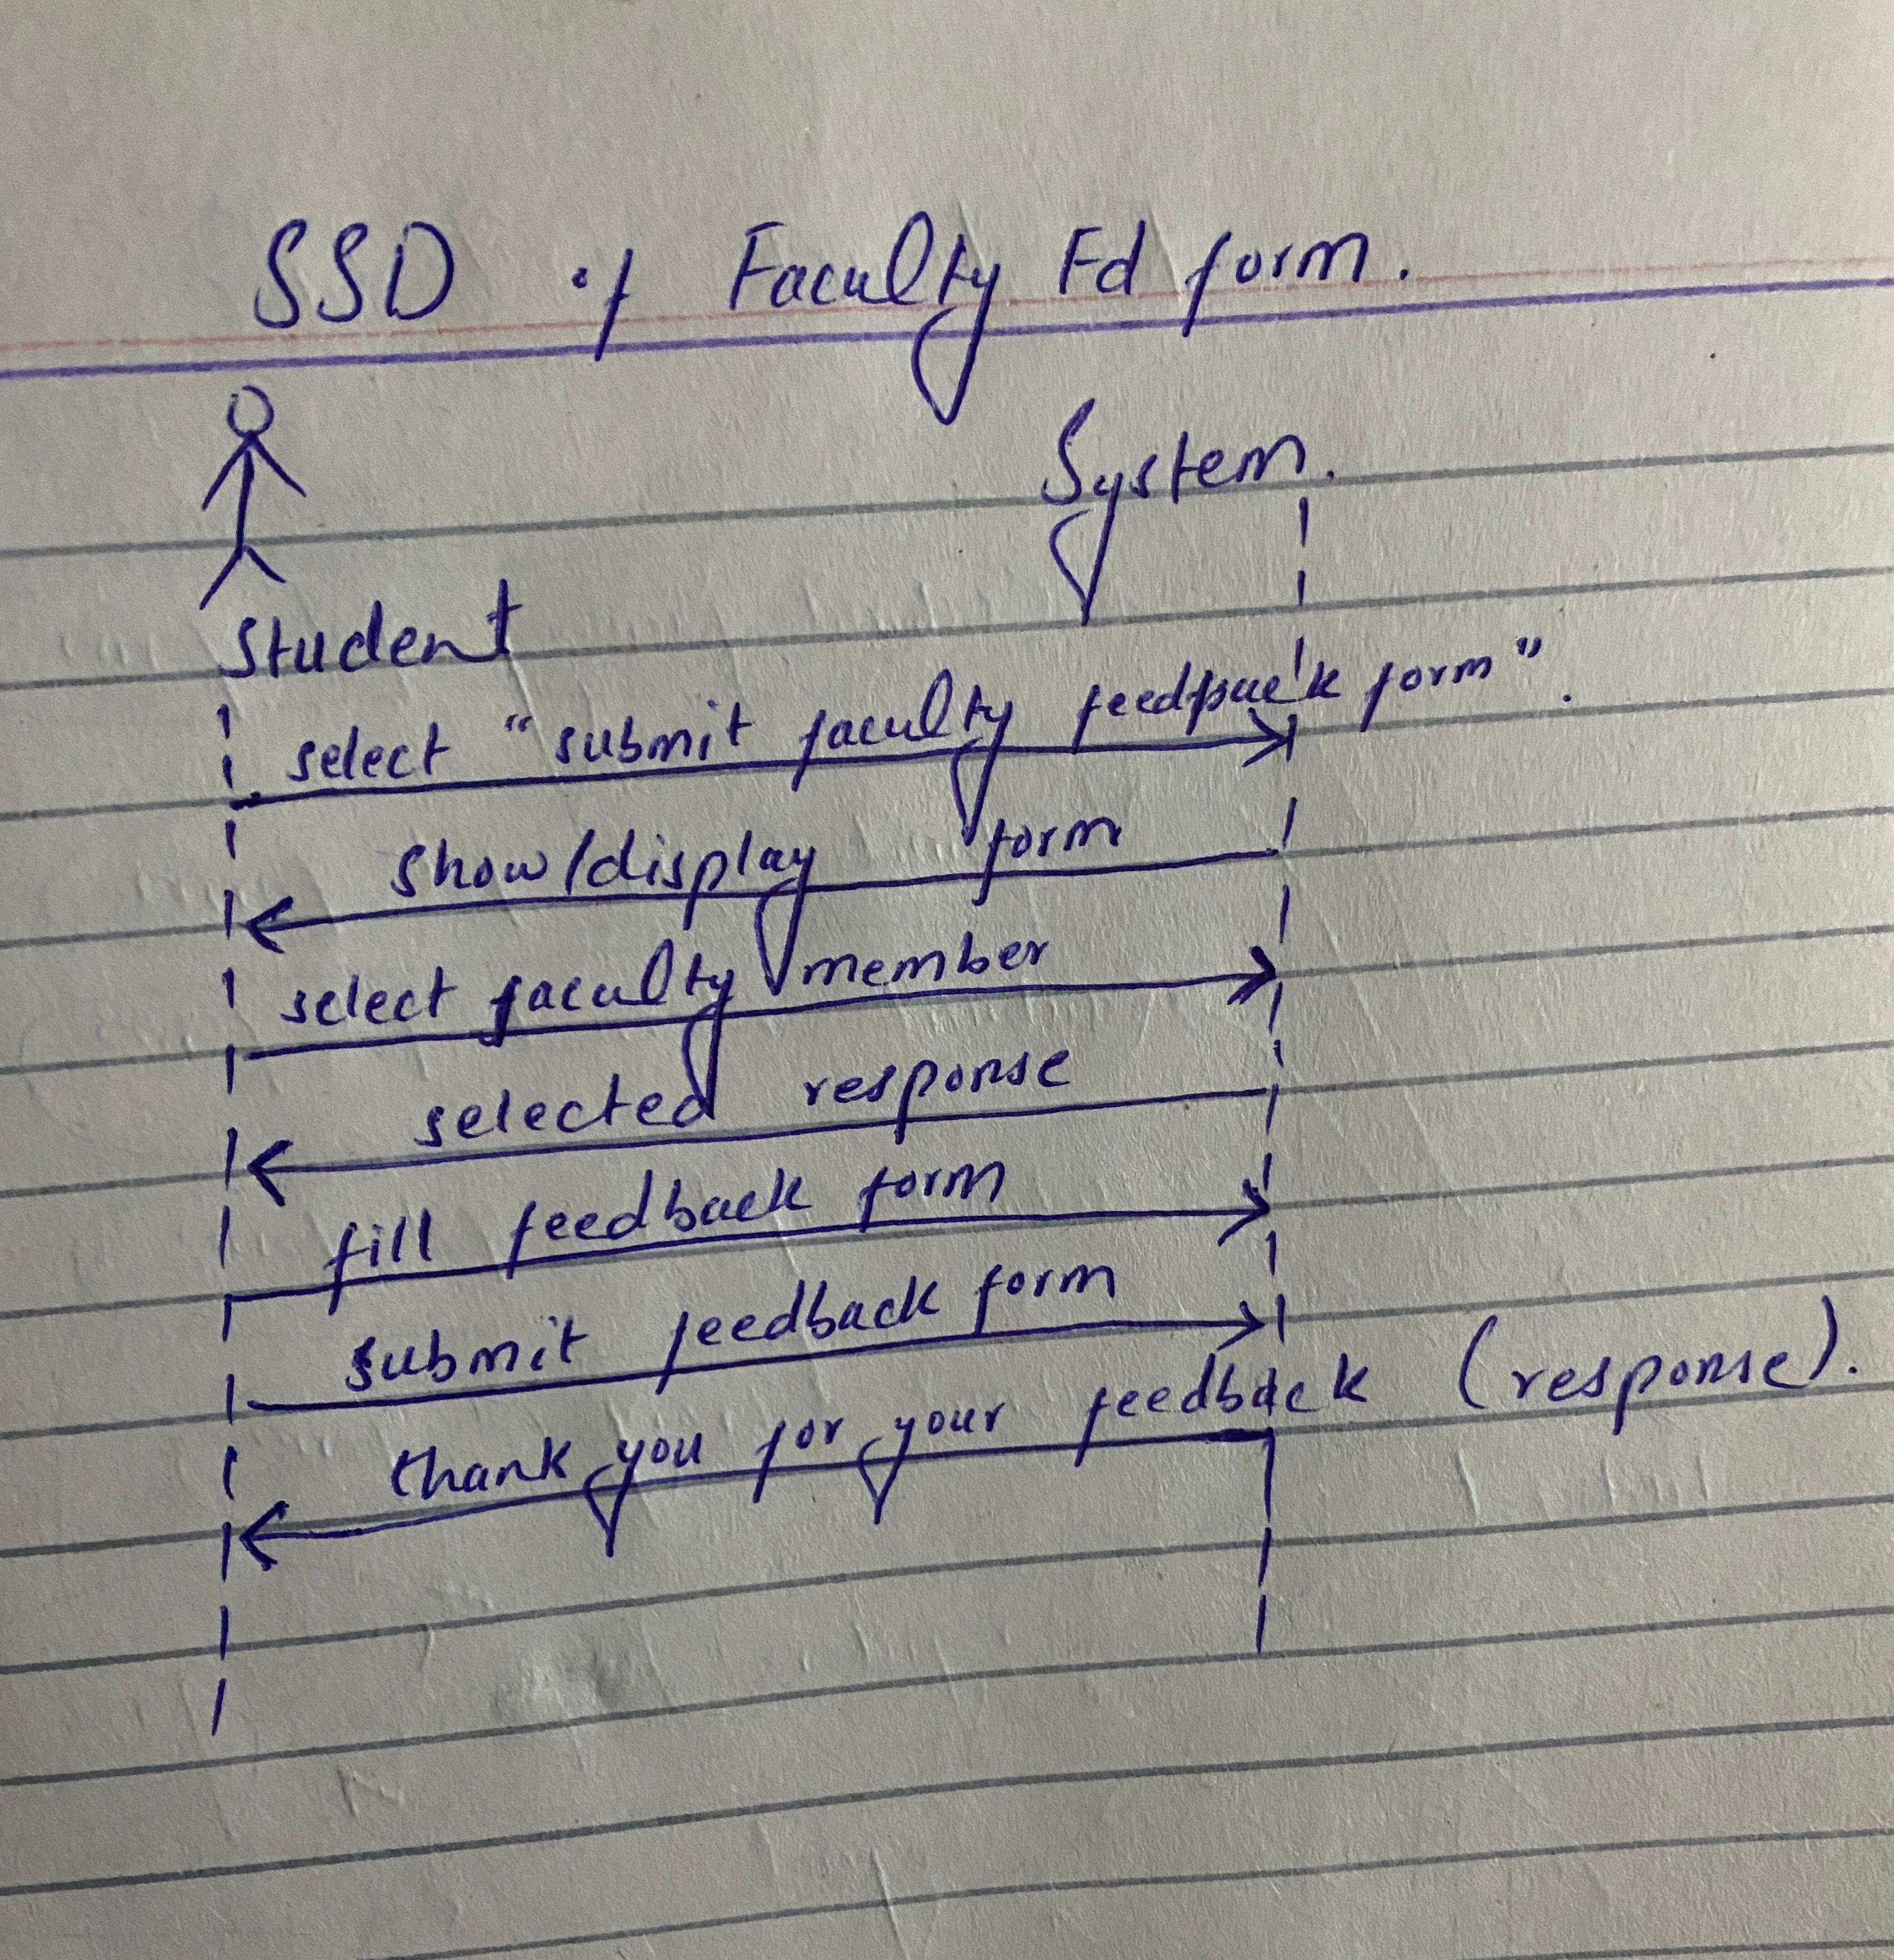 SSD of Faculty Fd form.
System.
Student
select "submit faculty feedback form".
show/display form
select faculty member
selected response
fill feedback form
submit feedback form
thank you for your feedback (response).